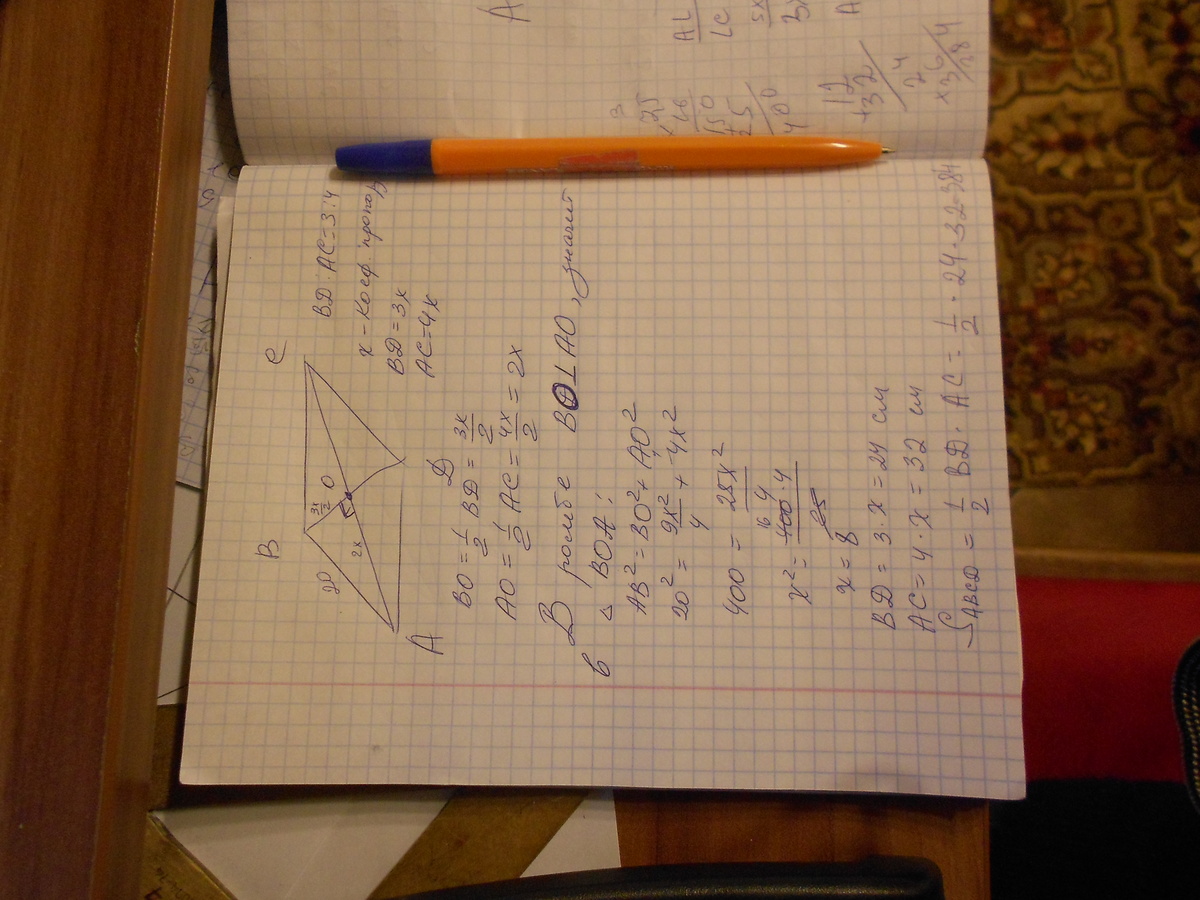 B
C
20
3x/2
O
2x
A
D
BD : AC = 3:4
x - Коеф. пропор
BD = 3x
AC = 4x
BO = 1/2 BD = 3x/2
AO = 1/2 AC = 4x/2 = 2x
В ромбе BO⊥AO, значит
в △ BOA:
AB² = BO² + AO²
20² = 9x²/4 + 4x²
400 = 25x²/4
x² = 400·4/25
16
x = 8
BD = 3·x = 24 см
AC = 4·x = 32 см
S ABCD = 1/2 BD · AC = 1/2 · 24 · 32 = 384
A
AL
LC
5x
3x
A
3
×25
16
150
+25
400
12
+32
24
×36